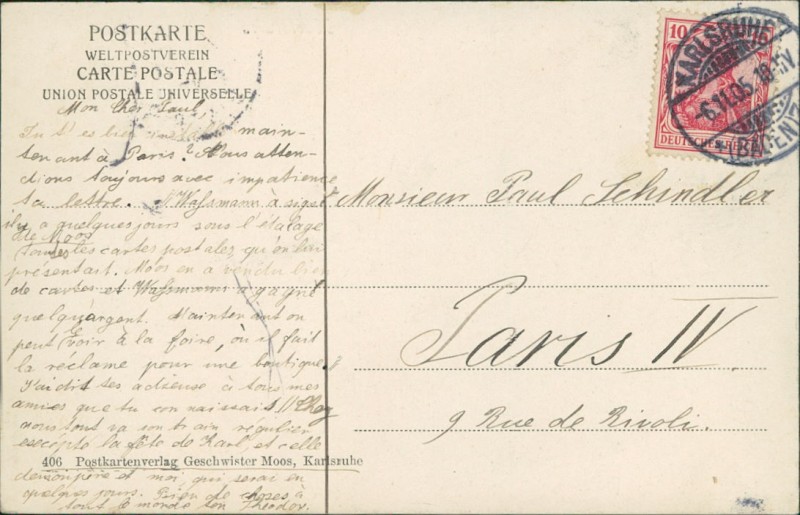 POSTKARTE
WELTPOSTVEREIN
CARTE POSTALE
UNION POSTALE UNIVERSELLE
Mon cher Paul,
Tu t'es bien main-
tenant à Paris? Nous atten-
dions toujours avec impatience
ta lettre. Wassmann à signé
il y a quelques jours sous l'étalage
de Moos
toutes les cartes postales qu'on lui
présentait. Moos en a vendu bien
de cartes et Wassmann a gagné
quelqu'argent. Maintenant on
peut voir à la foire, où il fait
la réclame pour une boutique.
J'ai dit tes adresse à tous mes
amies que tu connaissait. Chez
nous tout va son train régulier
excepté la fête de Karl, et celle
406 Postkartenverlag Geschwister Moos, Karlsruhe
et moi, qui serai en
quelques jours. Bien de choses à
tout le monde ton Theodor.
10
DEUTSCHES REICH
KARLSRUHE
-6.11.05.
(BADEN)
Monsieur Paul Schindler
Paris IV.
9 Rue de Rivoli.